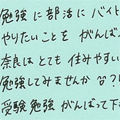 勉強に部活にバイト
やりたいことを がんばっ
奈良はとても住みやすい
勉強してみませんか??
受験勉強 がんばって下